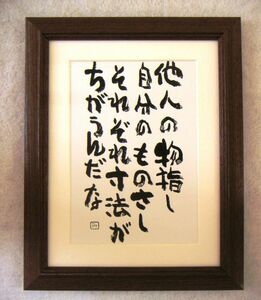 他人の物指し
自分のものさし
それぞれ寸法が
ちがうんだな